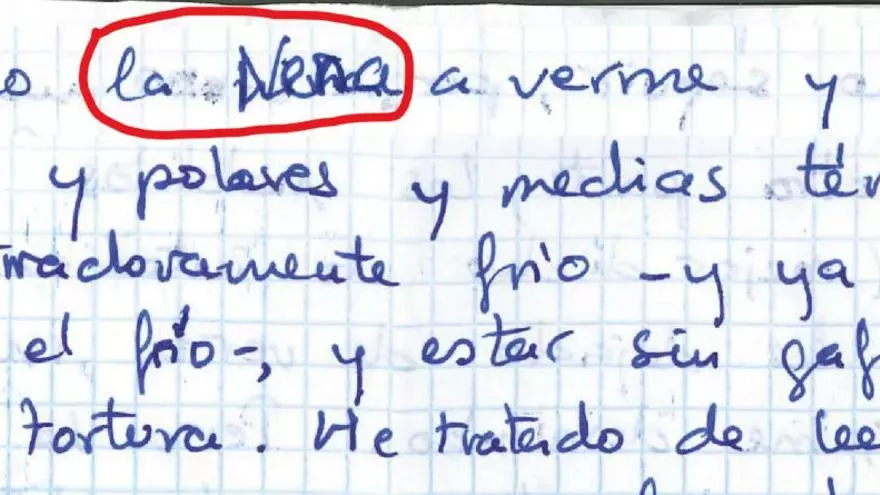 o la Nena a verme y
y polares y medias tér
madoramente frío - y ya
el frío -, y estar sin gaf
tortura. He tratado de lee